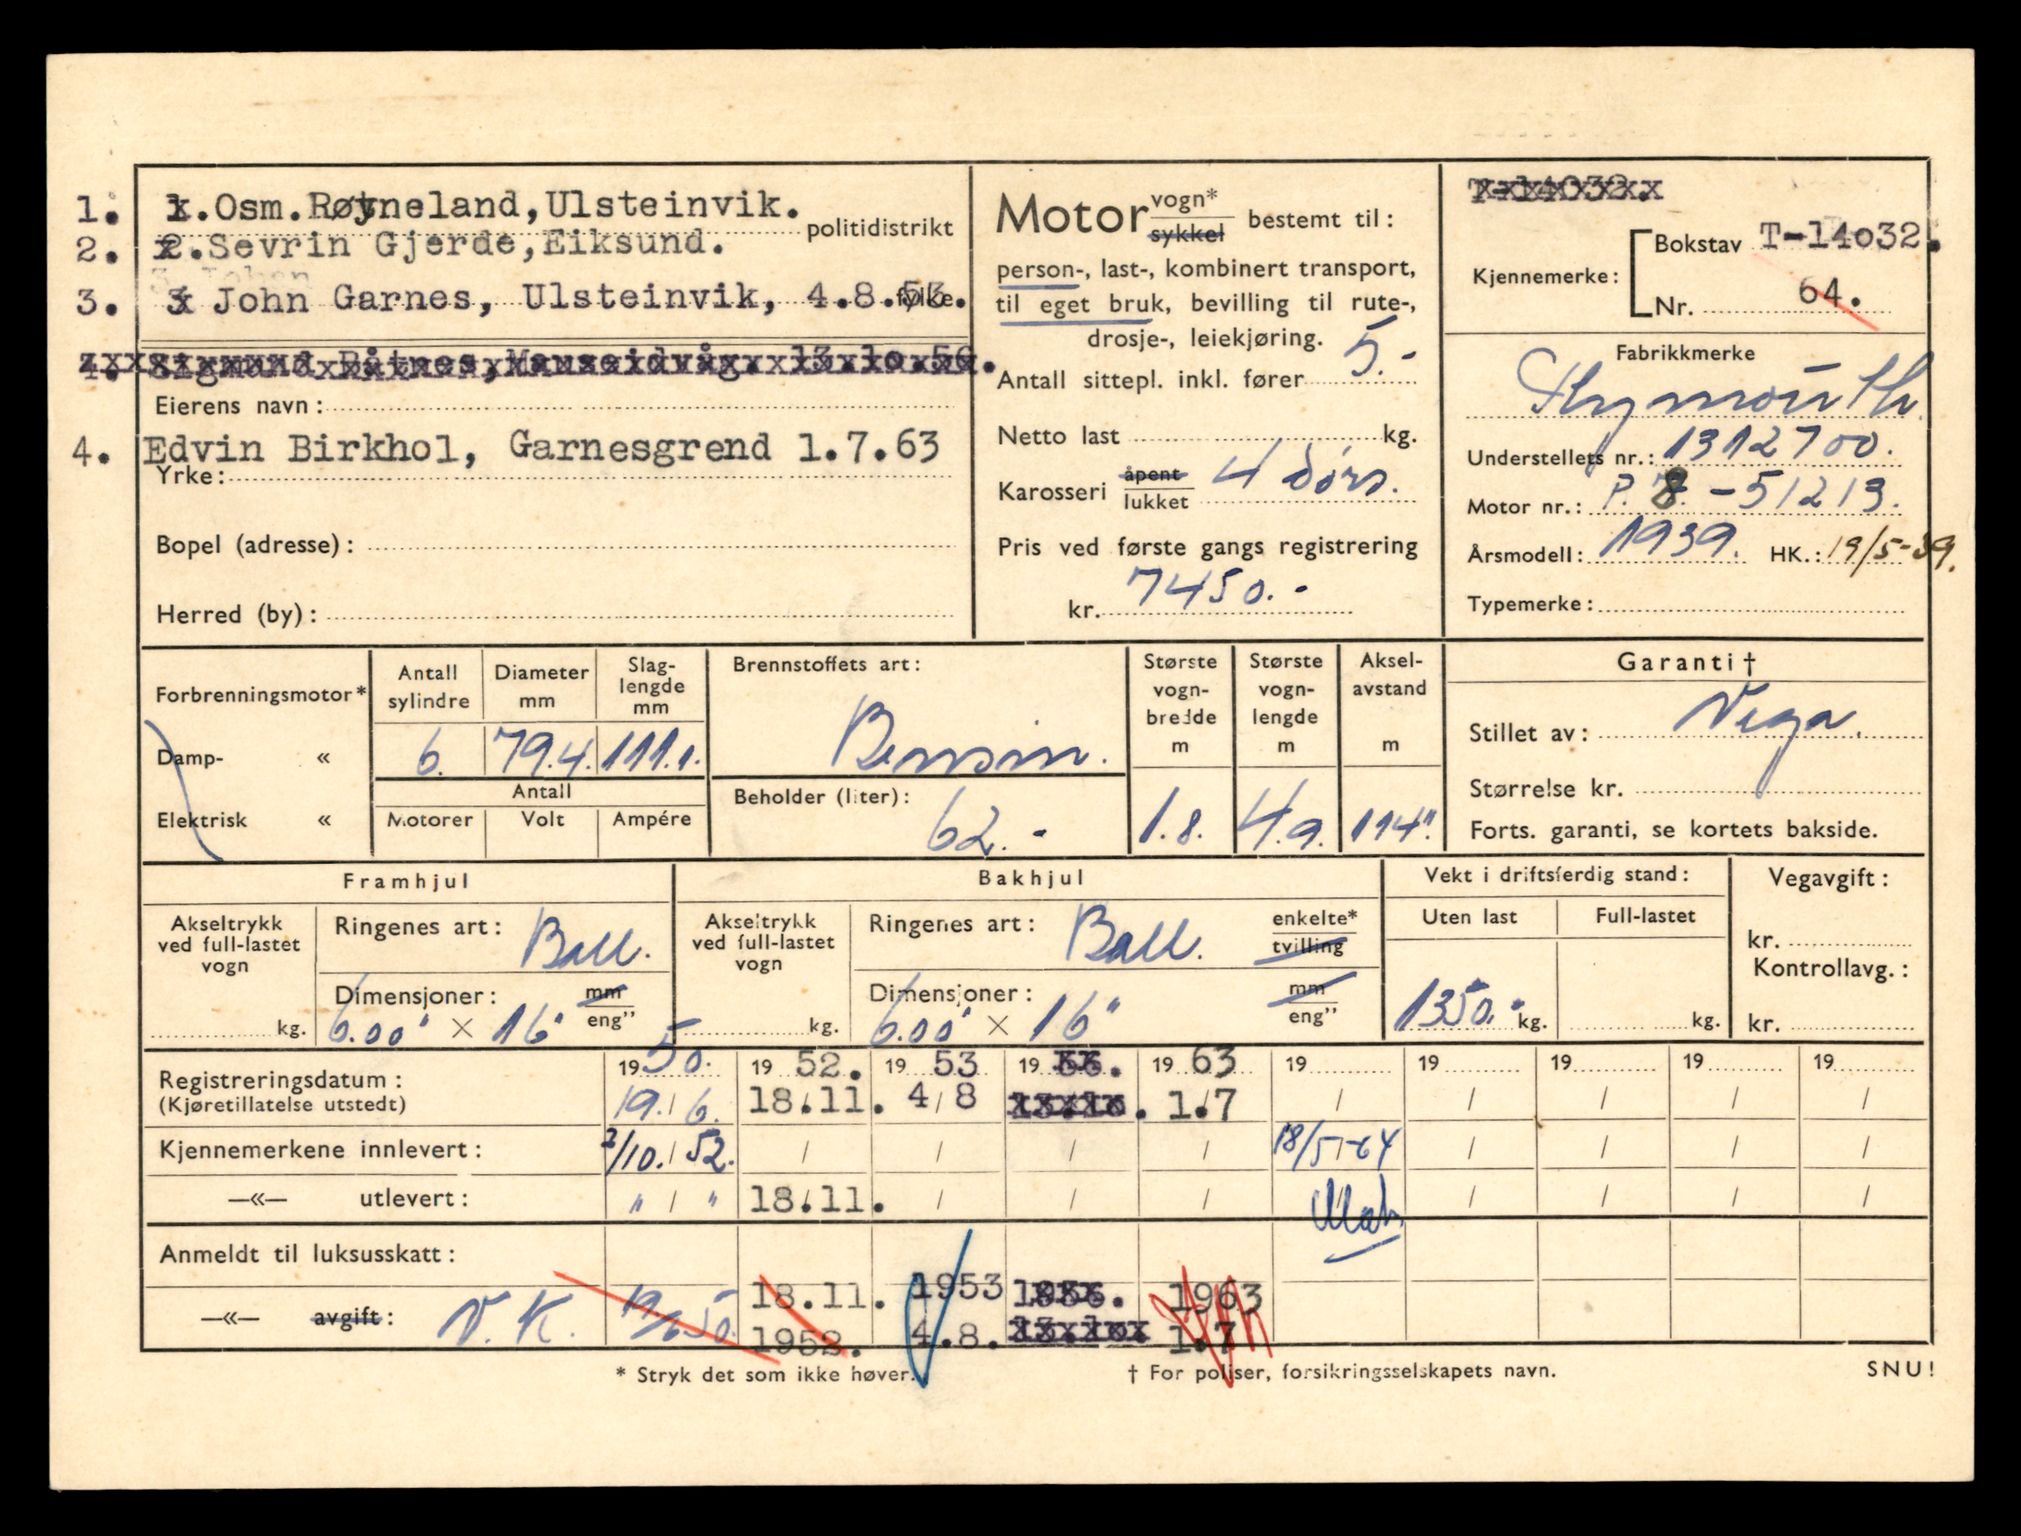 1. 1. Osm.Røyneland,Ulsteinvik.
politidistrikt
2. 2.Sevrin Gjerde,Eiksund.
3. 3 John Garnes, Ulsteinvik, 4.8.53.
fylke.
4. Sigmund Båtnes, 13.10.56.
Eierens navn:
4. Edvin Birkhol, Garnesgrend 1.7.63
Yrke:
Bopel (adresse):
Herred (by):
Motor vogn* sykkel bestemt til:
person-, last-, kombinert transport,
til eget bruk, bevilling til rute-,
drosje-, leiekjøring.
Antall sittepl. inkl. fører 5.-
Netto last kg.
Karosseri åpent lukket 4 dørs.
Pris ved første gangs registrering
kr. 7450.-
T-14032.
Kjennemerke: Bokstav T-14032.
Nr. 64.
Fabrikkmerke
Plymouth
Understellets nr.: 1312700.
Motor nr.: P. 8. -51213.
Årsmodell: 1939. HK.: 19/5-39.
Typemerke:
Forbrenningsmotor*
Damp- «
Elektrisk «
Antall sylindre
6.
Diameter mm
79.4.
Slag-lengde mm
111.1.
Antall
Motorer Volt Ampére
Brennstoffets art:
Bensin.
Beholder (liter):
62.-
Største vogn-bredde m
1.8.
Største vogn-lengde m
4.9.
Aksel-avstand m
114".
Garanti †
Stillet av: Vega.
Størrelse kr.
Forts. garanti, se kortets bakside.
Framhjul
Akseltrykk ved full-lastet vogn
kg.
Ringenes art: Ball.
Dimensjoner: mm eng"
6.00" × 16"
Bakhjul
Akseltrykk ved full-lastet vogn
kg.
Ringenes art: Ball.
enkelte* tvilling
Dimensjoner: mm eng"
6.00" × 16"
Vekt i driftsferdig stand:
Uten last Full-lastet
1350.- kg. kg.
Vegavgift:
kr.
Kontrollavg.:
kr.
Registreringsdatum: 19 50. 19 52. 19 53 19 56. 19 63 19 19 19 19 19
(Kjøretillatelse utstedt) 19./6. 18.11. 4/8 13.10. 1.7 / / / / /
Kjennemerkene innlevert: 2/10./52. / / / / 18/5-64 / / / /
—«— utlevert: " / " 18.11. / / / / / / /
Anmeldt til luksusskatt:
—«— avgift: V.K. 19/6 50. 18.11. 1953 1956. 1963
1952. 4.8. 13.10. 1.7
* Stryk det som ikke høver.
† For poliser, forsikringsselskapets navn.
SNU!